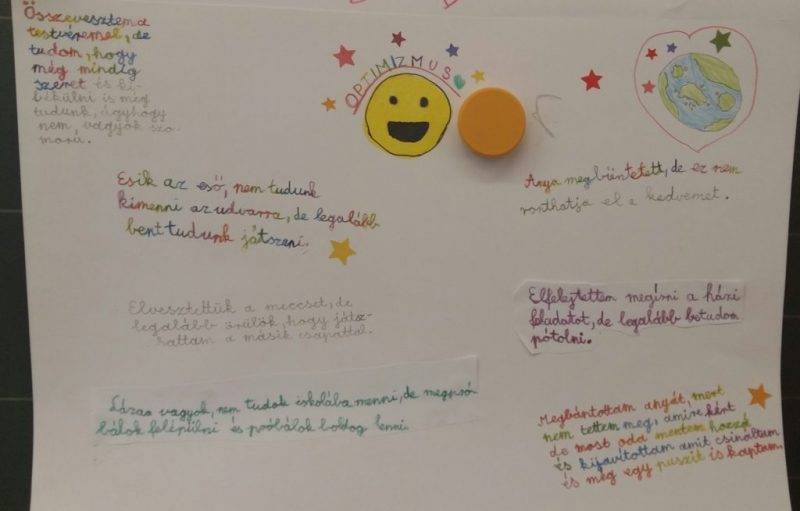 Összevesztem a
testvéremel, de
tudom, hogy
még mindig
szeret és ki-
békülni is még
tudunk, úgyhogy
nem vagyok szo-
morú.
OPTIMIZMUS
Esik az eső, nem tudunk
kimenni az udvarra, de legalább
bent tudunk játszani.
Anya megbüntetett, de ez nem
ronthatja el a kedvemet.
Elvesztettük a meccset, de
legalább örülök, hogy játsz-
hattam a másik csapattal.
Elfelejtettem megírni a házi
feladatot, de legalább be tudom
pótolni.
Lázas vagyok, nem tudok iskolába menni, de megpró-
bálok felépülni és próbálok boldog lenni.
Megbántottam anyát, mert
nem tettem meg, amire kért
de most oda mentem hozzá
és kijavítottam amit csináltam
és még egy puszit is kaptam.